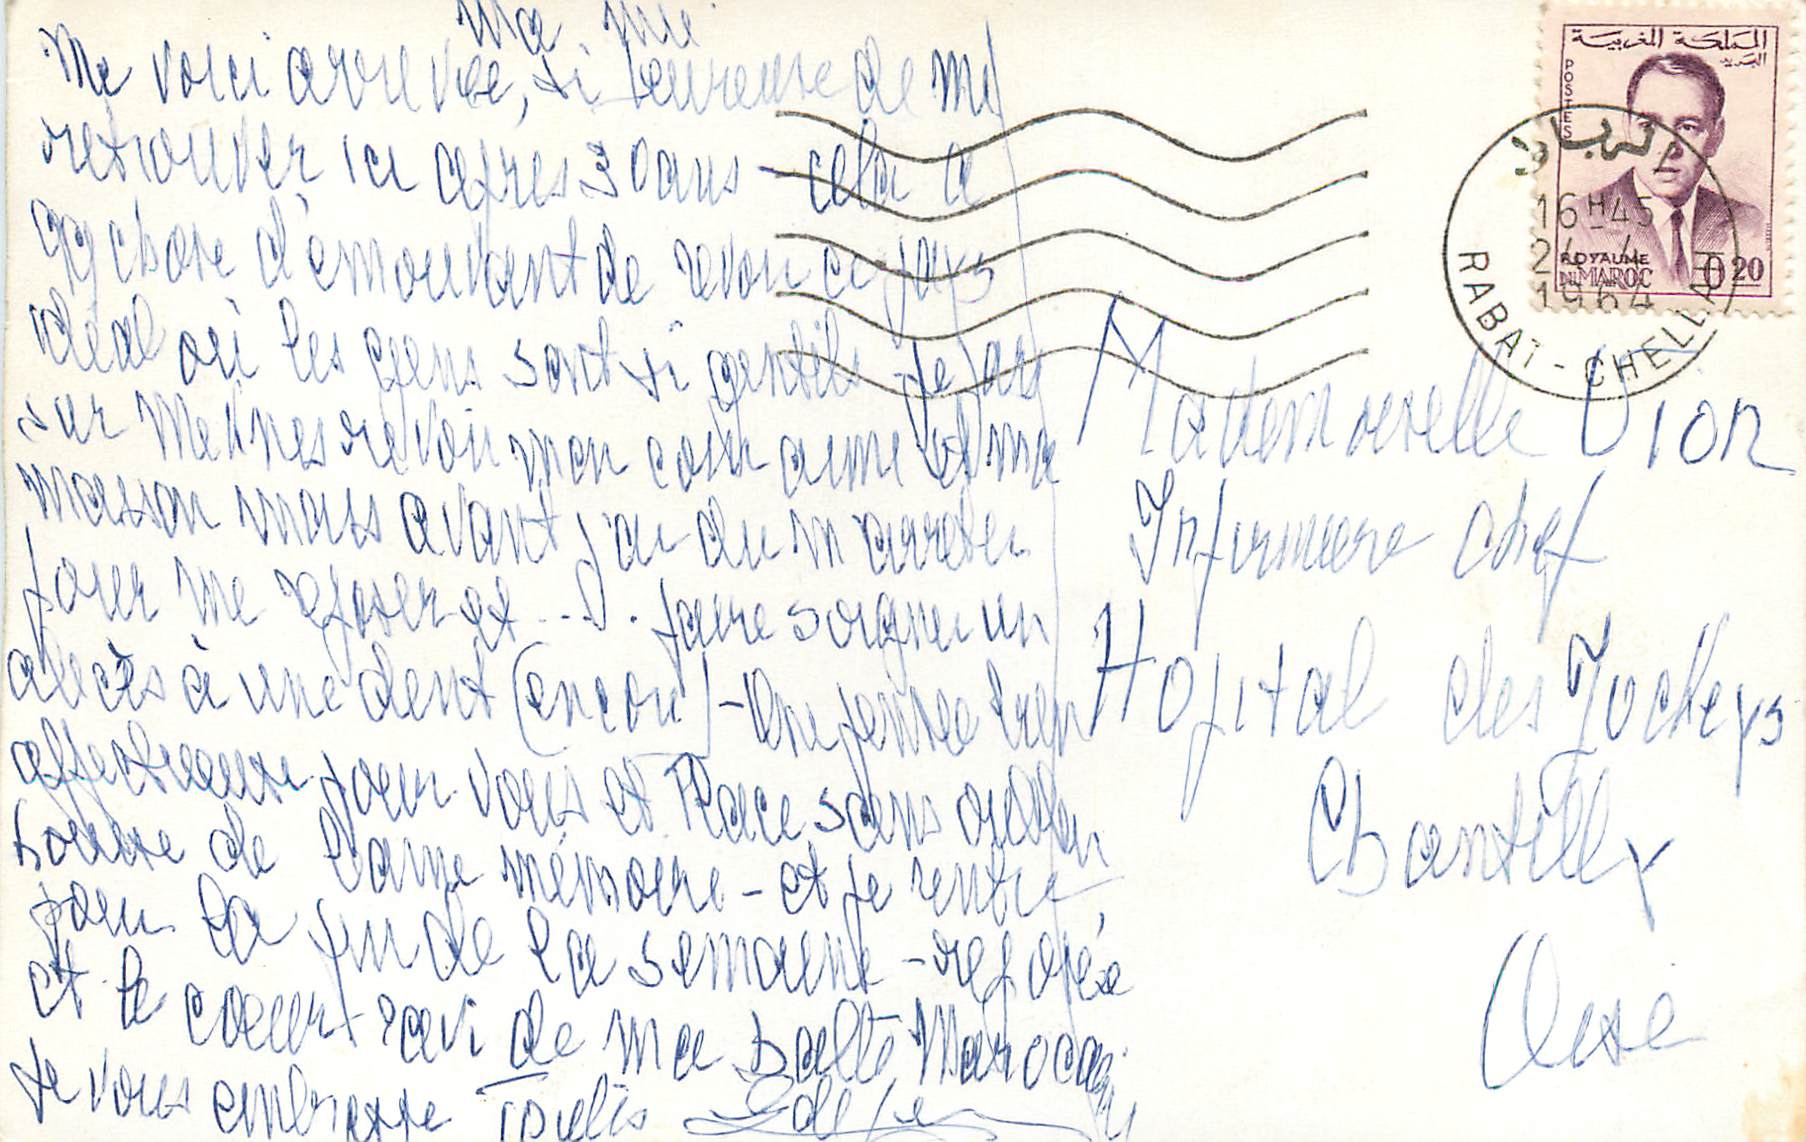 Ma mie
Me voici arrivée, si heureuse de me
retrouver ici après 30 ans - cela a
qq chose d'émouvant de revoir ce pays
idéal où les gens sont si gentils - Je
sur Meknes revoir mon coin aimé et ma
maison mais avant j'ai du m'arrêter
pour me reposer et .... faire soigner un
abcès à une dent (encore) - Une pensée très
affectueuse pour vous et sans oublier
de mémoire - et je rentre
pour la fin de la semaine - reposée
et le coeur ravi de ma balte Marocaine
Je vous embrasse toutes
Mademoiselle Dion
Infirmiere chef
Hopital des Jockeys
Chantilly
Oise
المملكة المغربية
البريد
POSTES
ROYAUME
DU MAROC
0.20
الرباط
16H45
24-4
1964
RABAT-CHELLAH